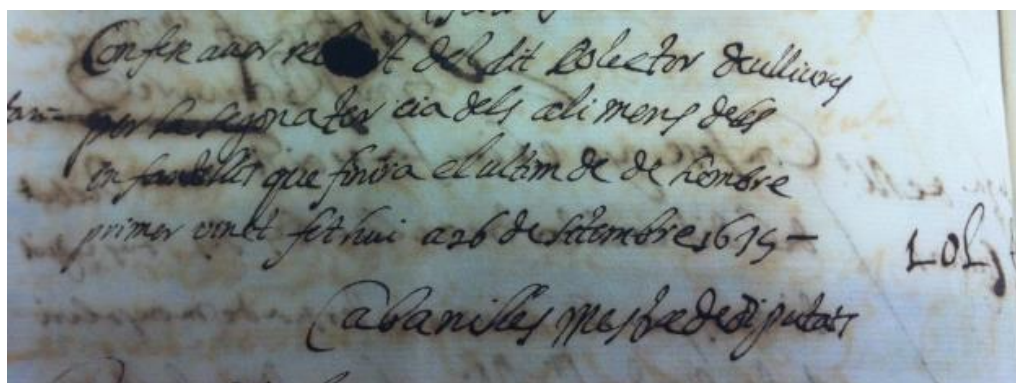 Confese aver rebut del dit Colector deu lliures
per la segona tercia dels alimens dels
infantillos que finira el ultim de dehembre
primer vinet fet hui a 26 de setembre 1675 -
10 L
Cabanilles mestre de Diputats